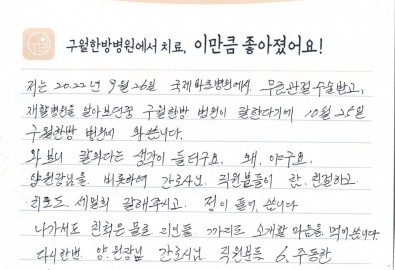 구월한방병원에서 치료, 이만큼 좋아졌어요!
저는 2022년 9월 26일 국제바로병원에서 무릎관절수술받고,
재활병원을 알아보던중 구월한방 병원이 잘한다기에 10월 25일
구월한방 병원에 왔습니다.
와보니 잘왔다는 생각이 들더구요. 왜. 야구요.
양원장님을 비롯하여 간호사님. 직원분들이 참. 친절하고.
치료도. 세밀히 잘해주시고. 정이 들어, 습니다
나가서도 친척은 물론 지인들 까지도 소개할 마음을 먹어습니다.
다시한번. 양.원장님 간호사님. 직원분들 6. 주동안